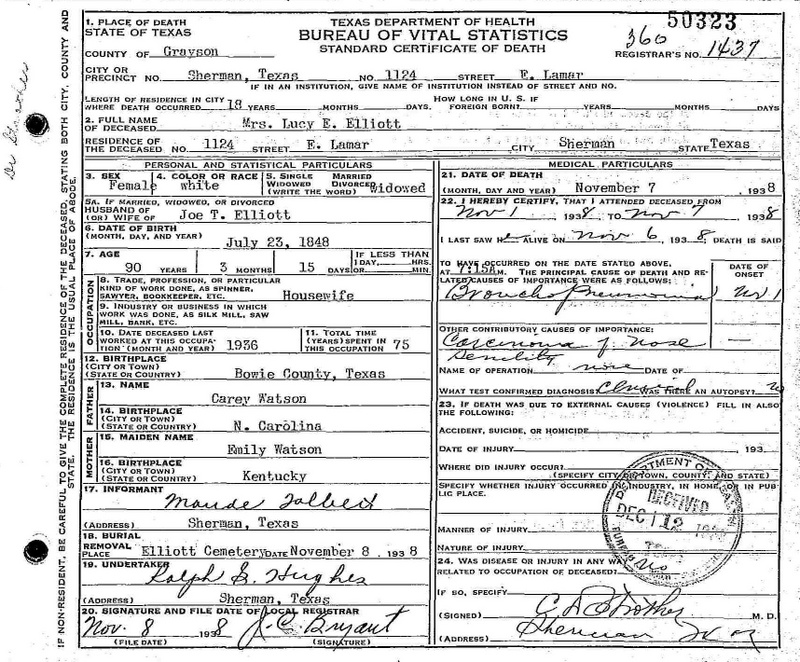 50323
1. PLACE OF DEATH
STATE OF TEXAS
COUNTY OF Grayson
TEXAS DEPARTMENT OF HEALTH
BUREAU OF VITAL STATISTICS
STANDARD CERTIFICATE OF DEATH
360
REGISTRAR'S NO. 1437
CITY OR
PRECINCT NO. Sherman, Texas NO. 1124 STREET E. Lamar
IF IN AN INSTITUTION, GIVE NAME OF INSTITUTION INSTEAD OF STREET AND NO.
LENGTH OF RESIDENCE IN CITY
WHERE DEATH OCCURRED 18 YEARS MONTHS DAYS. HOW LONG IN U. S. IF
FOREIGN BORN? YEARS MONTHS DAYS
2. FULL NAME
OF DECEASED Mrs. Lucy E. Elliott
RESIDENCE OF
THE DECEASED 1124 STREET E. Lamar CITY Sherman STATE Texas
PERSONAL AND STATISTICAL PARTICULARS
3. SEX Female
4. COLOR OR RACE white
5. SINGLE MARRIED
WIDOWED DIVORCED
(WRITE THE WORD) Widowed
5A. IF MARRIED, WIDOWED, OR DIVORCED
HUSBAND OF
(OR) WIFE OF Joe T. Elliott
6. DATE OF BIRTH
(MONTH, DAY, AND YEAR) July 23, 1848
7. AGE
90 YEARS 3 MONTHS 15 DAYS
IF LESS THAN
1 DAY, HRS.
OR MIN.
OCCUPATION
8. TRADE, PROFESSION, OR PARTICULAR
KIND OF WORK DONE, AS SPINNER,
SAWYER, BOOKKEEPER, ETC. Housewife
9. INDUSTRY OR BUSINESS IN WHICH
WORK WAS DONE, AS SILK MILL, SAW
MILL, BANK, ETC.
10. DATE DECEASED LAST
WORKED AT THIS OCCUPA-
TION (MONTH AND YEAR) 1936
11. TOTAL TIME
(YEARS) SPENT IN
THIS OCCUPATION 75
12. BIRTHPLACE
(CITY OR TOWN)
(STATE OR COUNTRY) Bowie County, Texas
FATHER
13. NAME
Carey Watson
14. BIRTHPLACE
(CITY OR TOWN)
(STATE OR COUNTRY) N. Carolina
MOTHER
15. MAIDEN NAME
Emily Watson
16. BIRTHPLACE
(CITY OR TOWN)
(STATE OR COUNTRY) Kentucky
17. INFORMANT
Maude Tolbert
(ADDRESS) Sherman, Texas
18. BURIAL
REMOVAL
PLACE Elliott Cemetery DATE November 8 1938
19. UNDERTAKER
Ralph S. Hughes
(ADDRESS) Sherman, Texas
20. SIGNATURE AND FILE DATE OF LOCAL REGISTRAR
Nov. 8 1938 J. C. Bryant
(FILE DATE) (SIGNATURE)
MEDICAL PARTICULARS
21. DATE OF DEATH
(MONTH, DAY AND YEAR) November 7 1938
22. I HEREBY CERTIFY, THAT I ATTENDED DECEASED FROM
Nov 1 1938, TO Nov 7 1938
I LAST SAW H ALIVE ON Nov 6 1938, DEATH IS SAID
TO HAVE OCCURRED ON THE DATE STATED ABOVE,
AT 7:15A M. THE PRINCIPAL CAUSE OF DEATH AND RE-
LATED CAUSES OF IMPORTANCE WERE AS FOLLOWS:
DATE OF
ONSET
Broncho Pneumonia
OTHER CONTRIBUTORY CAUSES OF IMPORTANCE:
Carcinoma of nose
Senility
NAME OF OPERATION none DATE OF
WHAT TEST CONFIRMED DIAGNOSIS Clinical WAS THERE AN AUTOPSY?
23. IF DEATH WAS DUE TO EXTERNAL CAUSES (VIOLENCE) FILL IN ALSO
THE FOLLOWING:
ACCIDENT, SUICIDE, OR HOMICIDE
DATE OF INJURY 193
WHERE DID INJURY OCCUR?
(SPECIFY CITY OR TOWN, COUNTY, AND STATE)
SPECIFY WHETHER INJURY OCCURRED IN INDUSTRY, IN HOME, OR IN PUB-
LIC PLACE.
MANNER OF INJURY
NATURE OF INJURY
24. WAS DISEASE OR INJURY IN ANY WAY
RELATED TO OCCUPATION OF DECEASED? No
IF SO, SPECIFY
(SIGNED) M. D.
(ADDRESS) Sherman
RECEIVED
DEC 12
IF NON-RESIDENT, BE CAREFUL TO GIVE THE COMPLETE RESIDENCE OF THE DECEASED, STATING BOTH CITY, COUNTY AND
STATE. THE RESIDENCE IS THE USUAL PLACE OF ABODE.